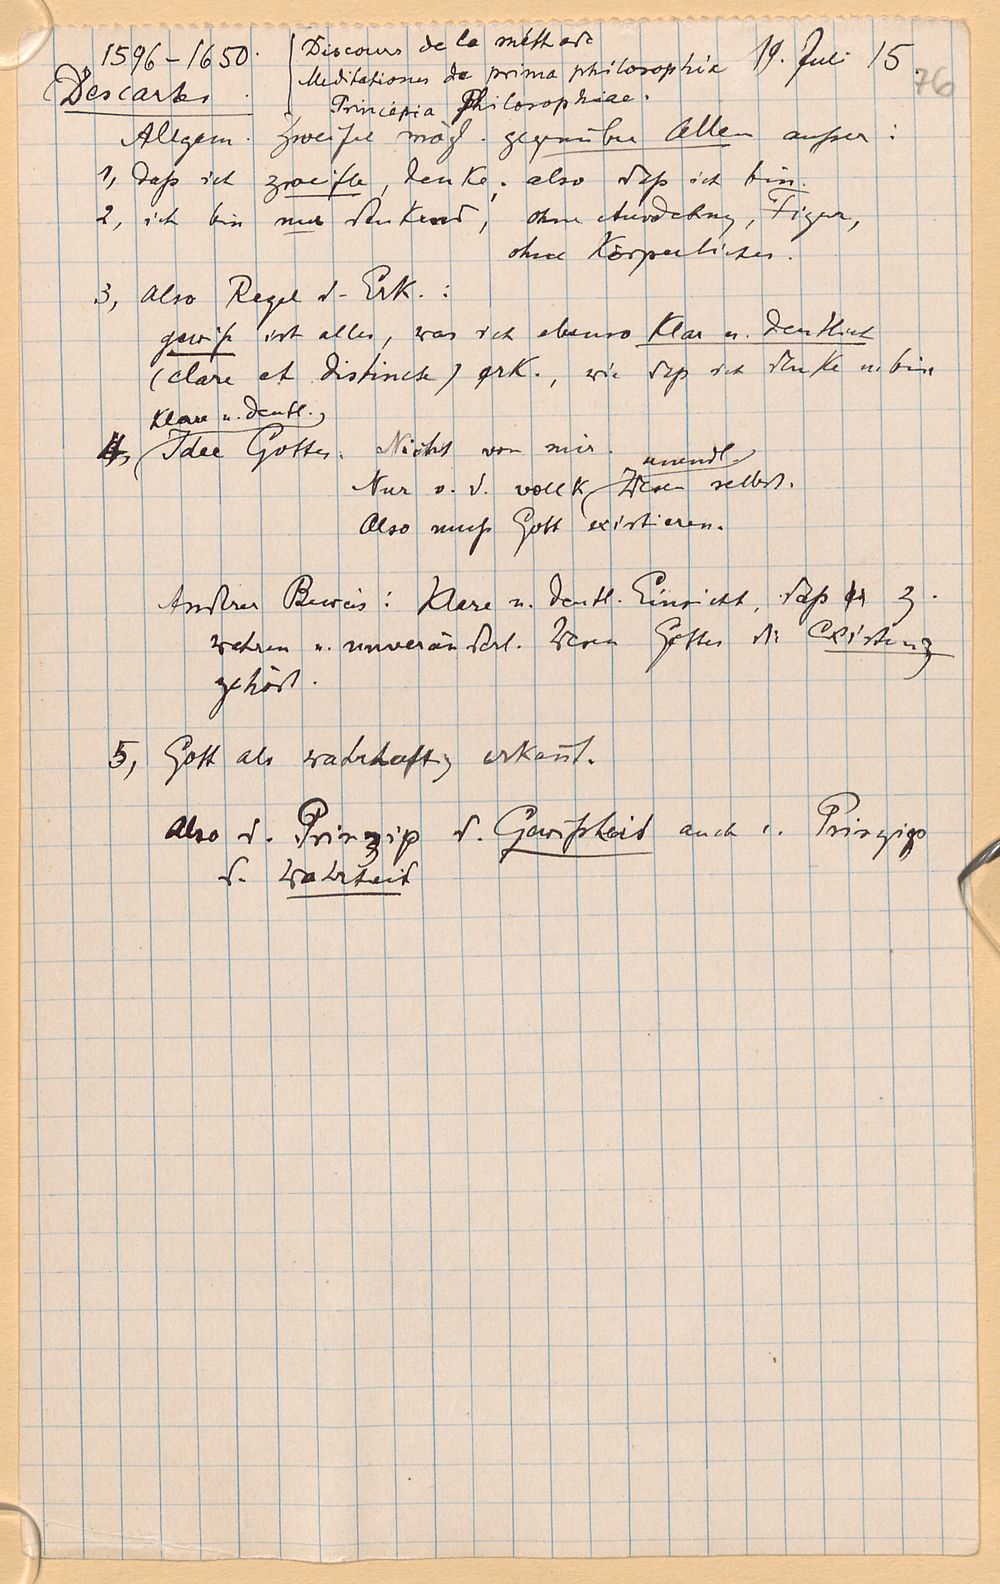 1596–1650. Discours de la méthode 19. Juli 15. 76
Meditationes de prima philosophia
Descartes. Principia Philosophiae.
Allgem. Zweifel mögl. gegenüber Allem außer:
1, daß ich zweifle, denke; also daß ich bin.
2, ich bin nur denkend, ohne Ausdehng, Figur,
ohne Körperliches.
3, Also Regel d. Erk.:
gewiß ist alles, was ich ebenso klar u. deutlich
(clare et distincte) erk., wie daß ich denke u. bin
klare u. deutl.
4, Idee Gottes. Nicht von mir.
unendl.
Nur v. d. vollk. Wesen selbst.
Also muß Gott existieren.
Andrer Beweis: Klare u. deutl. Einsicht, daß z.
wahren u. unveränderl. Wesen Gottes die Existenz
gehört.
5, Gott als wahrhaftig erkannt.
Also d. Prinzip d. Gewißheit auch e. Prinzip
d. Wahrheit